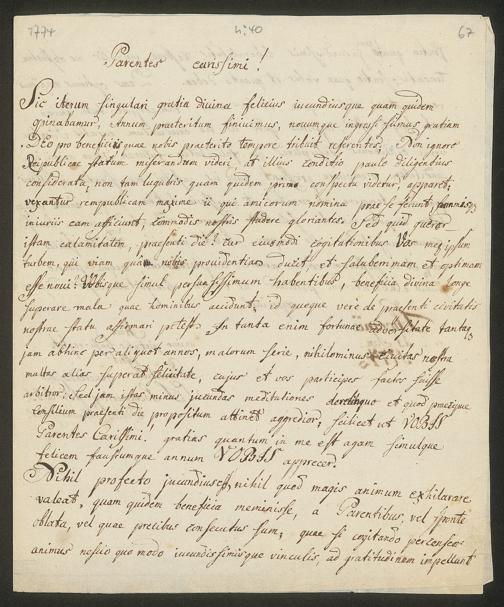 1774 h: 40 67
Parentes carissimi!
Sic iterum singulari gratia divina felicius iucundiusque quam quidem
opinabamur, Annum praeteritum finivimus, novumque ingressi sumus gratiam
DEO pro beneficiis quae nobis praeterito tempore tribuit referentes. Non ignoro
Reipublicae statum miserandum videri, at illius conditio paulo diligentius
considerata, non tam lugubris, quam quidem primo conspectu videtur, apparet;
vexantur rempublicam maxime ii qui amicorum nomina prae se ferunt,
iniuriis eam afficiunt, commodis nostris studere gloriantes. Sed quid queror
istam calamitatem, praesenti die? cur eiusmodi cogitationibus Vos meipsum
turbem, qui viam qua nobis providentia ducit, et saluberrimam et optimam
esse novi? Vobisque simul persuasissimum habentibus, beneficia divina longe
superare mala quae hominibus accidunt, id queque vere de praesenti civitatis
nostrae statu affirmari potest. In tanta enim fortunae adversitate tantaq
jam abhinc per aliquot annos, malorum serie, nihilominus civitas nostra
multas alias superat felicitate, cujus et vos participes factos fuisse
arbitror. Sed jam istas minus jucundas meditationes derelinquo et quod praecipue
consilium praesenti die, propositum attinet aggredior, scilicet ut VOBIS
Parentes Carissimi, gratias quantum in me est agam simulque
felicem faustumque annum VOBIS apprecer.
Nihil profecto jucundius est, nihil quod magis animum exhilarare
valeat, quam quidem beneficia meminisse, a Parentibus, vel sponte
oblata, vel quae precibus consecutus sum, quae si cogitando percenseo
animus nescio quo modo iucundissimisque vinculis, ad gratitudinem impellunt